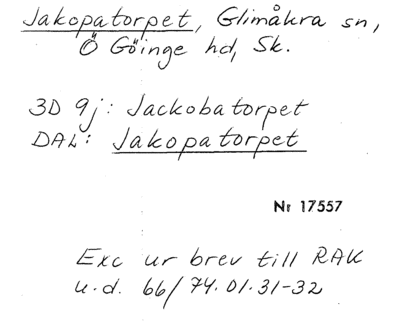 Jakopatorpet, Glimåkra sn,
Ö Göinge hd, Sk.
3D 9j: Jackobatorpet
DAL: Jakopatorpet
Nr 17557
Exc ur brev till RAK
u.d. 66/74.01.31-32